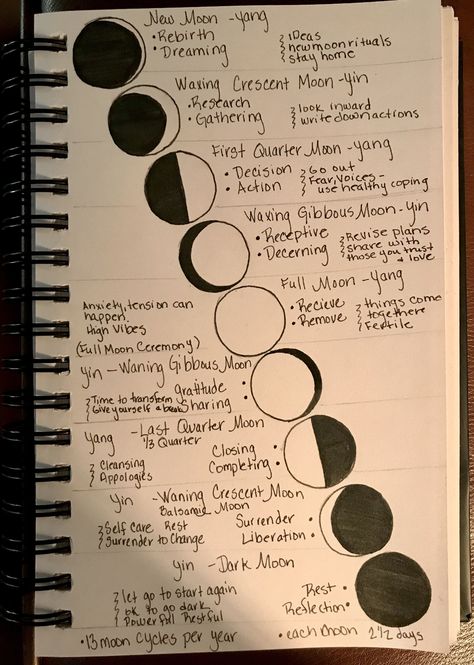 New Moon - yang
• Rebirth
• Dreaming
ideas
new moon rituals
stay home
Waxing Crescent Moon - yin
• Research
• Gathering
look inward
write down actions
First Quarter Moon - yang
• Decision
• Action
Go out
Fear, voices -
use healthy coping
Waxing Gibbous Moon - Yin
• Receptive
• Decerning
Revise plans
share with
those you trust
+ love
Full Moon - Yang
• Recieve
• Remove
things come
together
Fertile
Anxiety, tension can
happen.
High Vibes
(Full Moon Ceremony)
Yin - Waning Gibbous Moon
gratitude •
Sharing •
Time to transform
Give yourself a break
Yang - Last Quarter Moon
1/3 Quarter
Closing •
Completing •
Cleansing
Appologies
Yin - Waning Crescent Moon
Balsamic Moon
Surrender •
Liberation •
Self Care Rest
Surrender to Change
Yin - Dark Moon
Rest •
Reflection •
let go to start again
ok to go dark
Powerful Restful
• 13 moon cycles per year
• each moon 2 1/2 days